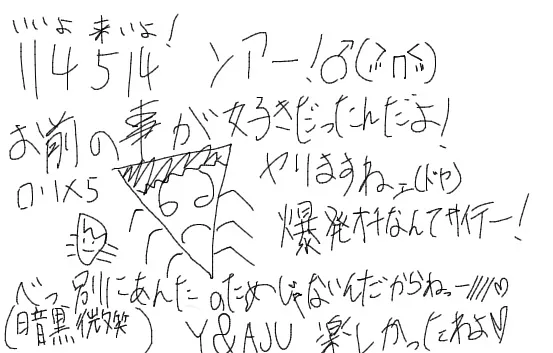 いいよ 来いよ!
114514
ンアー!♂(≧Π≦)
お前の事が好きだったんだよ!
ロリ×5
やりますねェ(ドヤ)
爆発オチなんてサイテー!
べっ別にあんたのためじゃないんだからねっー////♡
(暗黒微笑)
Y&AJU 楽しかったわよ♡